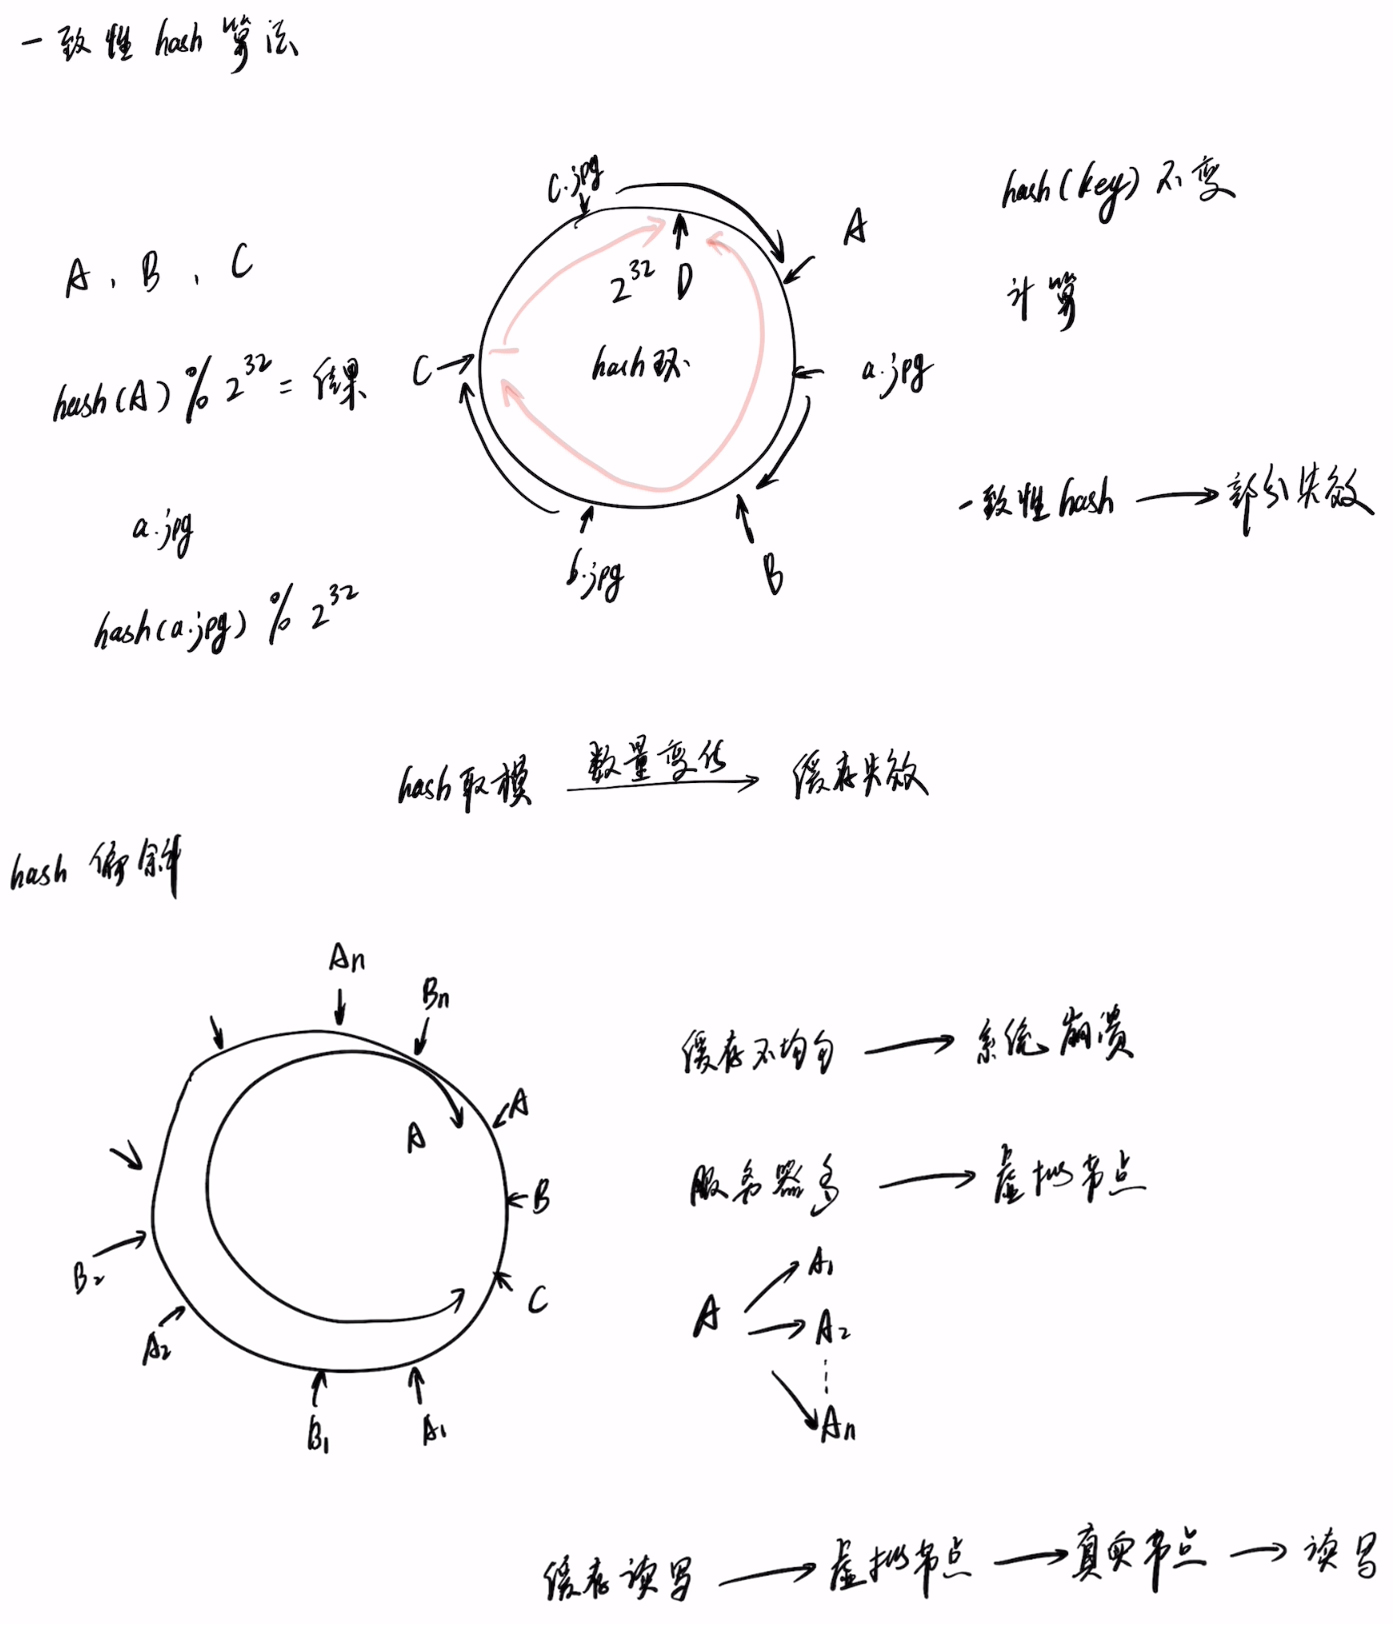 一致性 hash 算法
c.jpg
hash(key) 不变
A
A、B、C
2^32 D
计算
hash环
hash(A) % 2^32 = 结果
C
a.jpg
一致性hash → 部分失效
a.jpg
b.jpg
B
hash(a.jpg) % 2^32
hash取模 数量变化 → 缓存失效
hash 偏斜
An
Bn
缓存不均匀 → 系统崩溃
A
A
服务器多 → 虚拟节点
B
B2
A1
C
A
A2
A2
An
B1
A1
缓存读写 → 虚拟节点 → 真实节点 → 读写